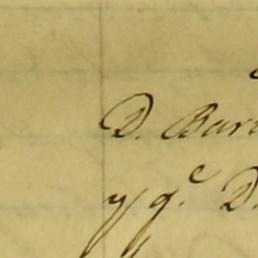 D. Bar
y g.e D.